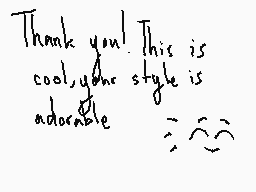 Thank you! This is
cool, your style is
adorable